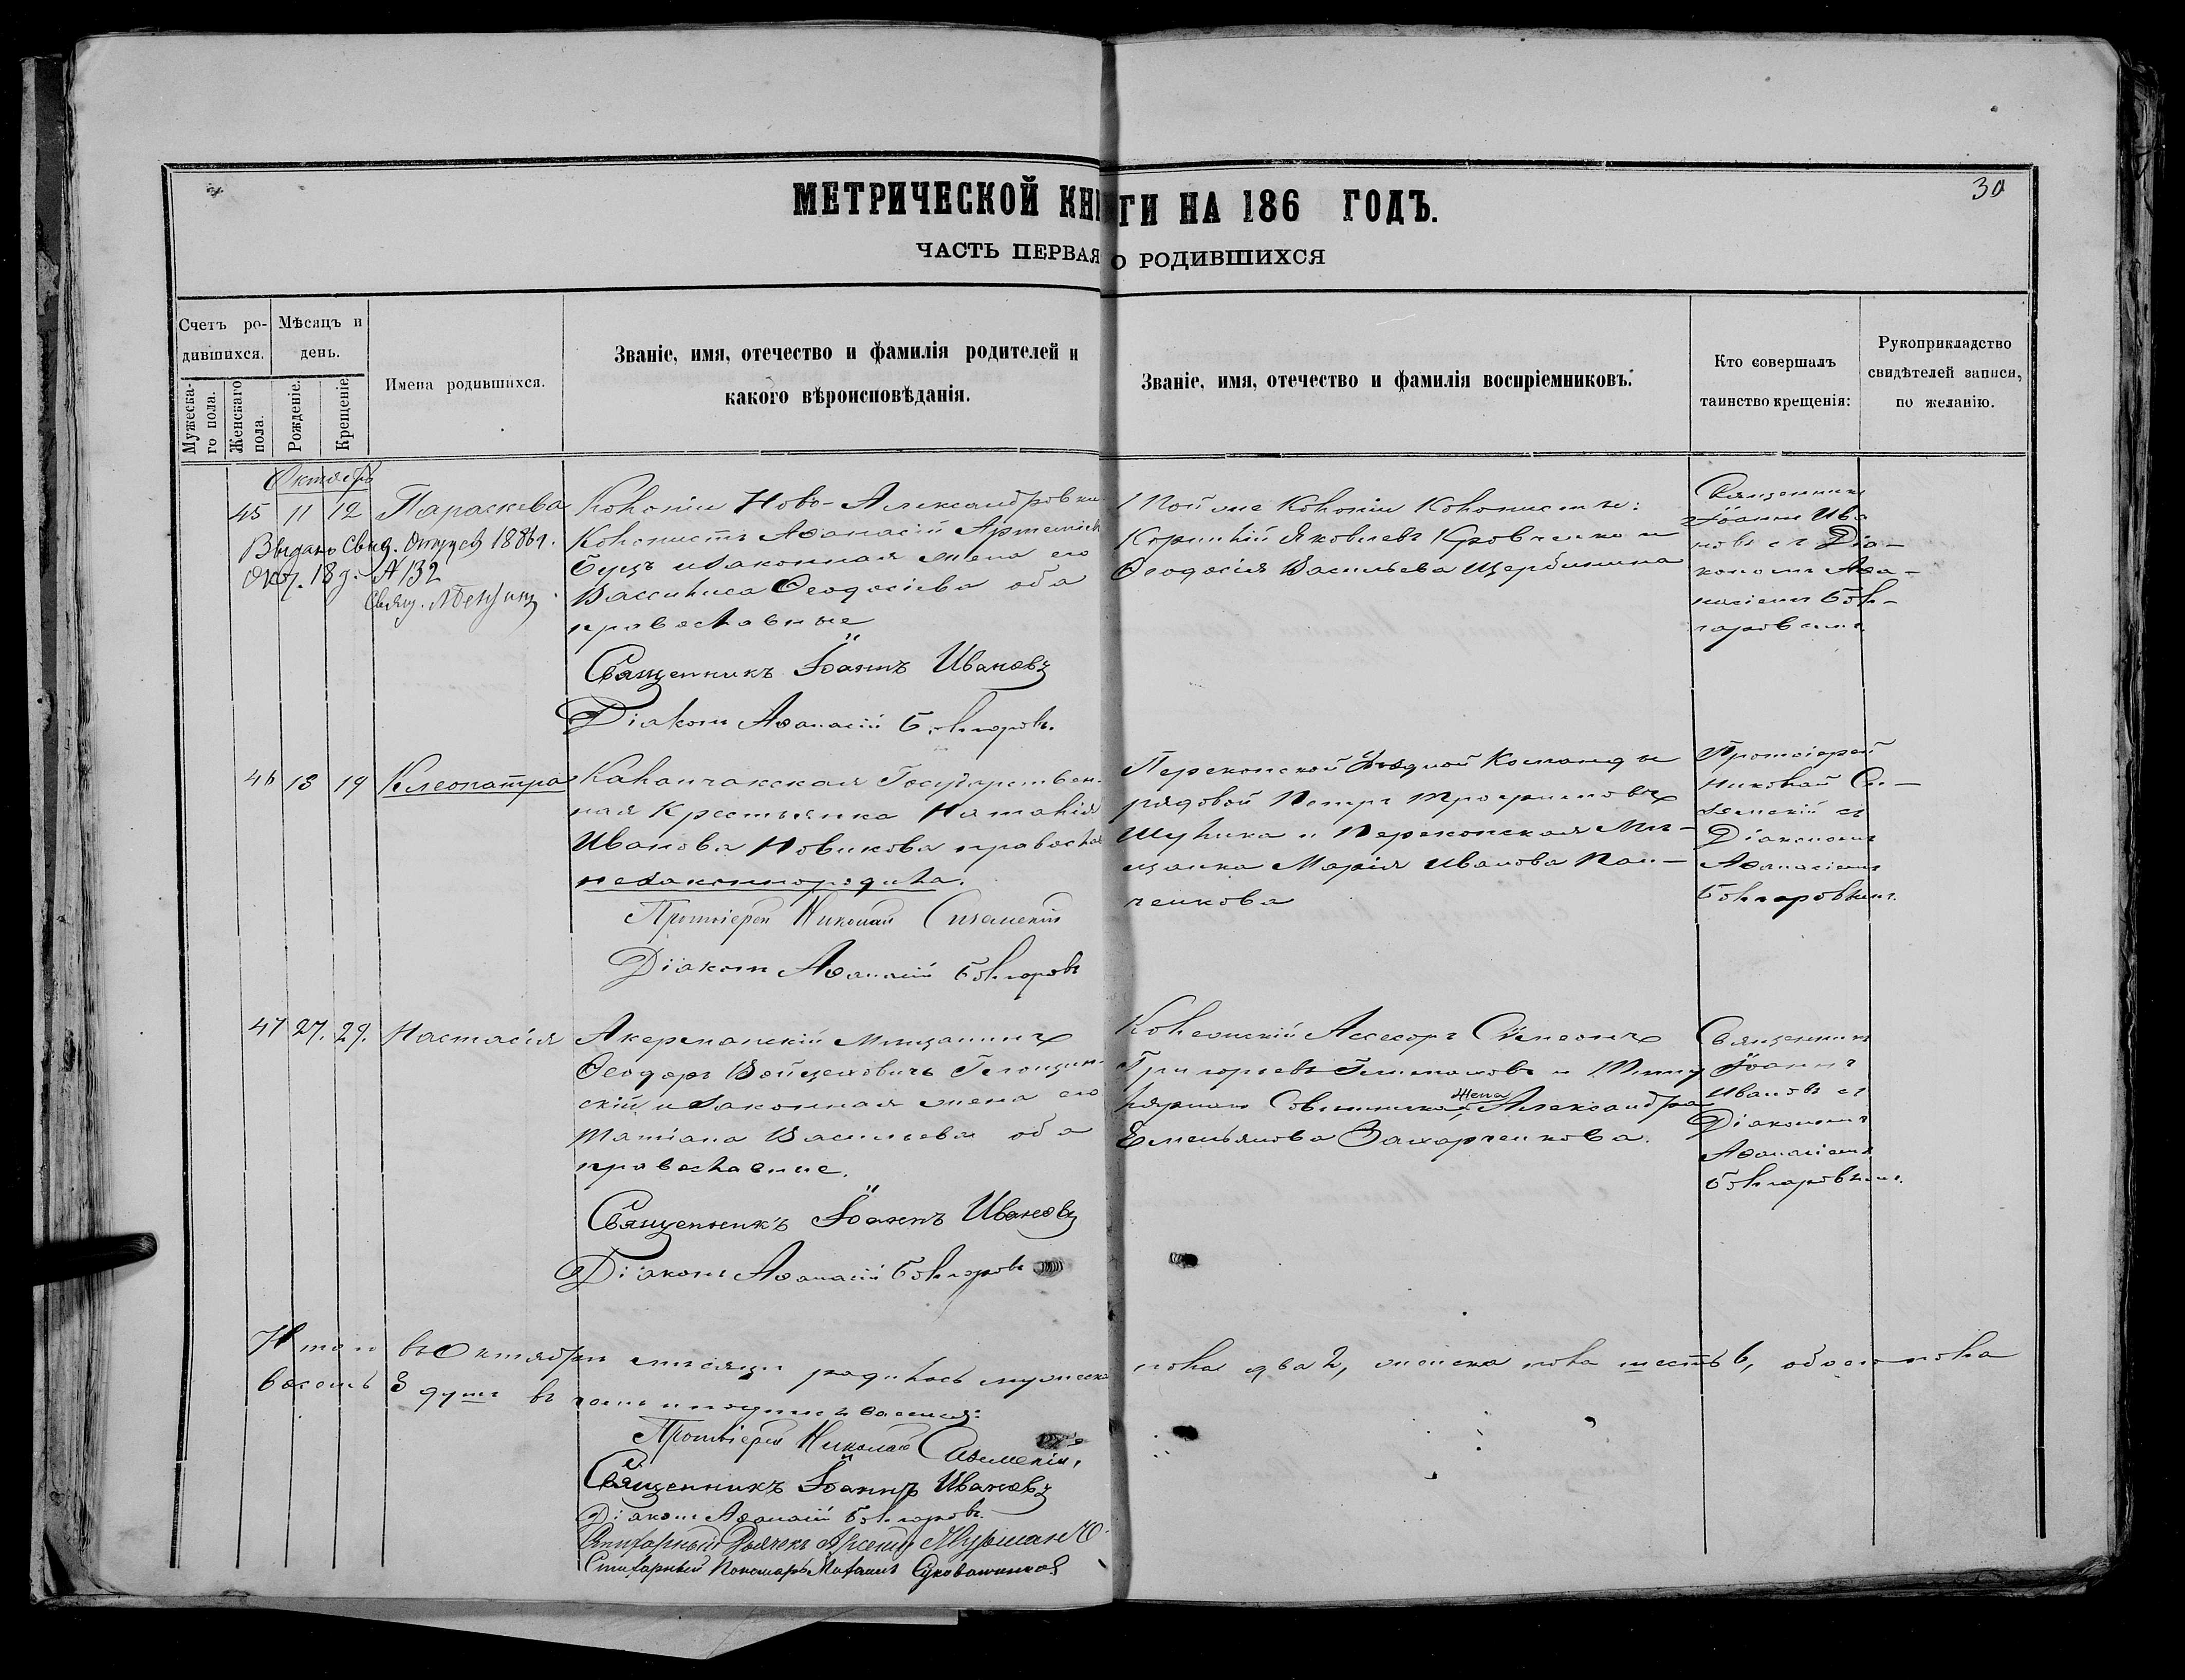 30
МЕТРИЧЕСКОЙ КНИГИ НА 186 ГОДЪ.
ЧАСТЬ ПЕРВАЯ О РОДИВШИХСЯ
Счетъ ро-
дившихся.
Мѣсяцъ и
день.
Мужеска-
го пола.
Женскаго
пола.
Рожденіе.
Крещеніе
Имена родившихся.
Званіе, имя, отечество и фамилія родителей и
какого вѣроисповѣданія.
Званіе, имя, отечество и фамилія воспріемниковъ:
Кто совершалъ
таинство крещенія:
Рукоприкладство
свидѣтелей записи,
по желанію.
Октябрь
45 11 12 Параскева
Выдано Свид.
18 д. № 132
Свящ.
Колоніи Ново-Александровки
Колонистъ Аѳанасій Артеміевъ
и законная жена его
Вассилиса Ѳеодосіева оба
православные
Священникъ Іоаннъ Ивановъ
Діаконъ Аѳанасій Болгаровъ.
Той же Колоніи Колонисты:
Корнилій Яковлевъ Кровченко и
Ѳеодосія Васильева Щербинина
Священникъ
Іоаннъ Ива
новъ съ Діа-
кономъ Аѳа-
насіемъ Бол-
гаровымъ
46 18 19 Клеопатра
Каланчакская Государствен-
ная Крестьянка Наталія
Иванова Новикова православ
незаконнородила.
Протоіерей Николай
Діаконъ Аѳанасій Болгаровъ
Перекопской Команды
рядовой Петръ Трофимовъ
Шулика и Перекопская Мѣ-
щанка Марія Иванова Пан-
ченкова
Протоіерей
Николай
съ
Діакономъ
Аѳанасіемъ
Болгаровымъ.
47 27. 29. Настасія
Акерманскій Мѣщанинъ
Ѳеодоръ Войцеховичъ
скій и законная жена его
Татіана Васильева оба
православные.
Священникъ Іоаннъ Ивановъ
Діаконъ Аѳанасій Болгаровъ
Колежскій Ассесоръ Сѵмеонъ
Григорьевъ и Титу
лярнаго Совѣтника жена Александра
Емельянова Захарченкова.
Священникъ
Іоаннъ
Ивановъ съ
Діакономъ
Аѳанасіемъ
Болгаровымъ.
Итого въ Октябрѣ мѣсяцѣ родилось мужеска пола два 2, женска пола шесть 6, обоего пола
восемь 8 душъ въ чемъ и подписываемся:
Протоіерей Николай
Священникъ Іоаннъ Ивановъ
Діаконъ Аѳанасій Болгаровъ.
Стихарный Дьячекъ Арсеній
Стихарный Пономарь